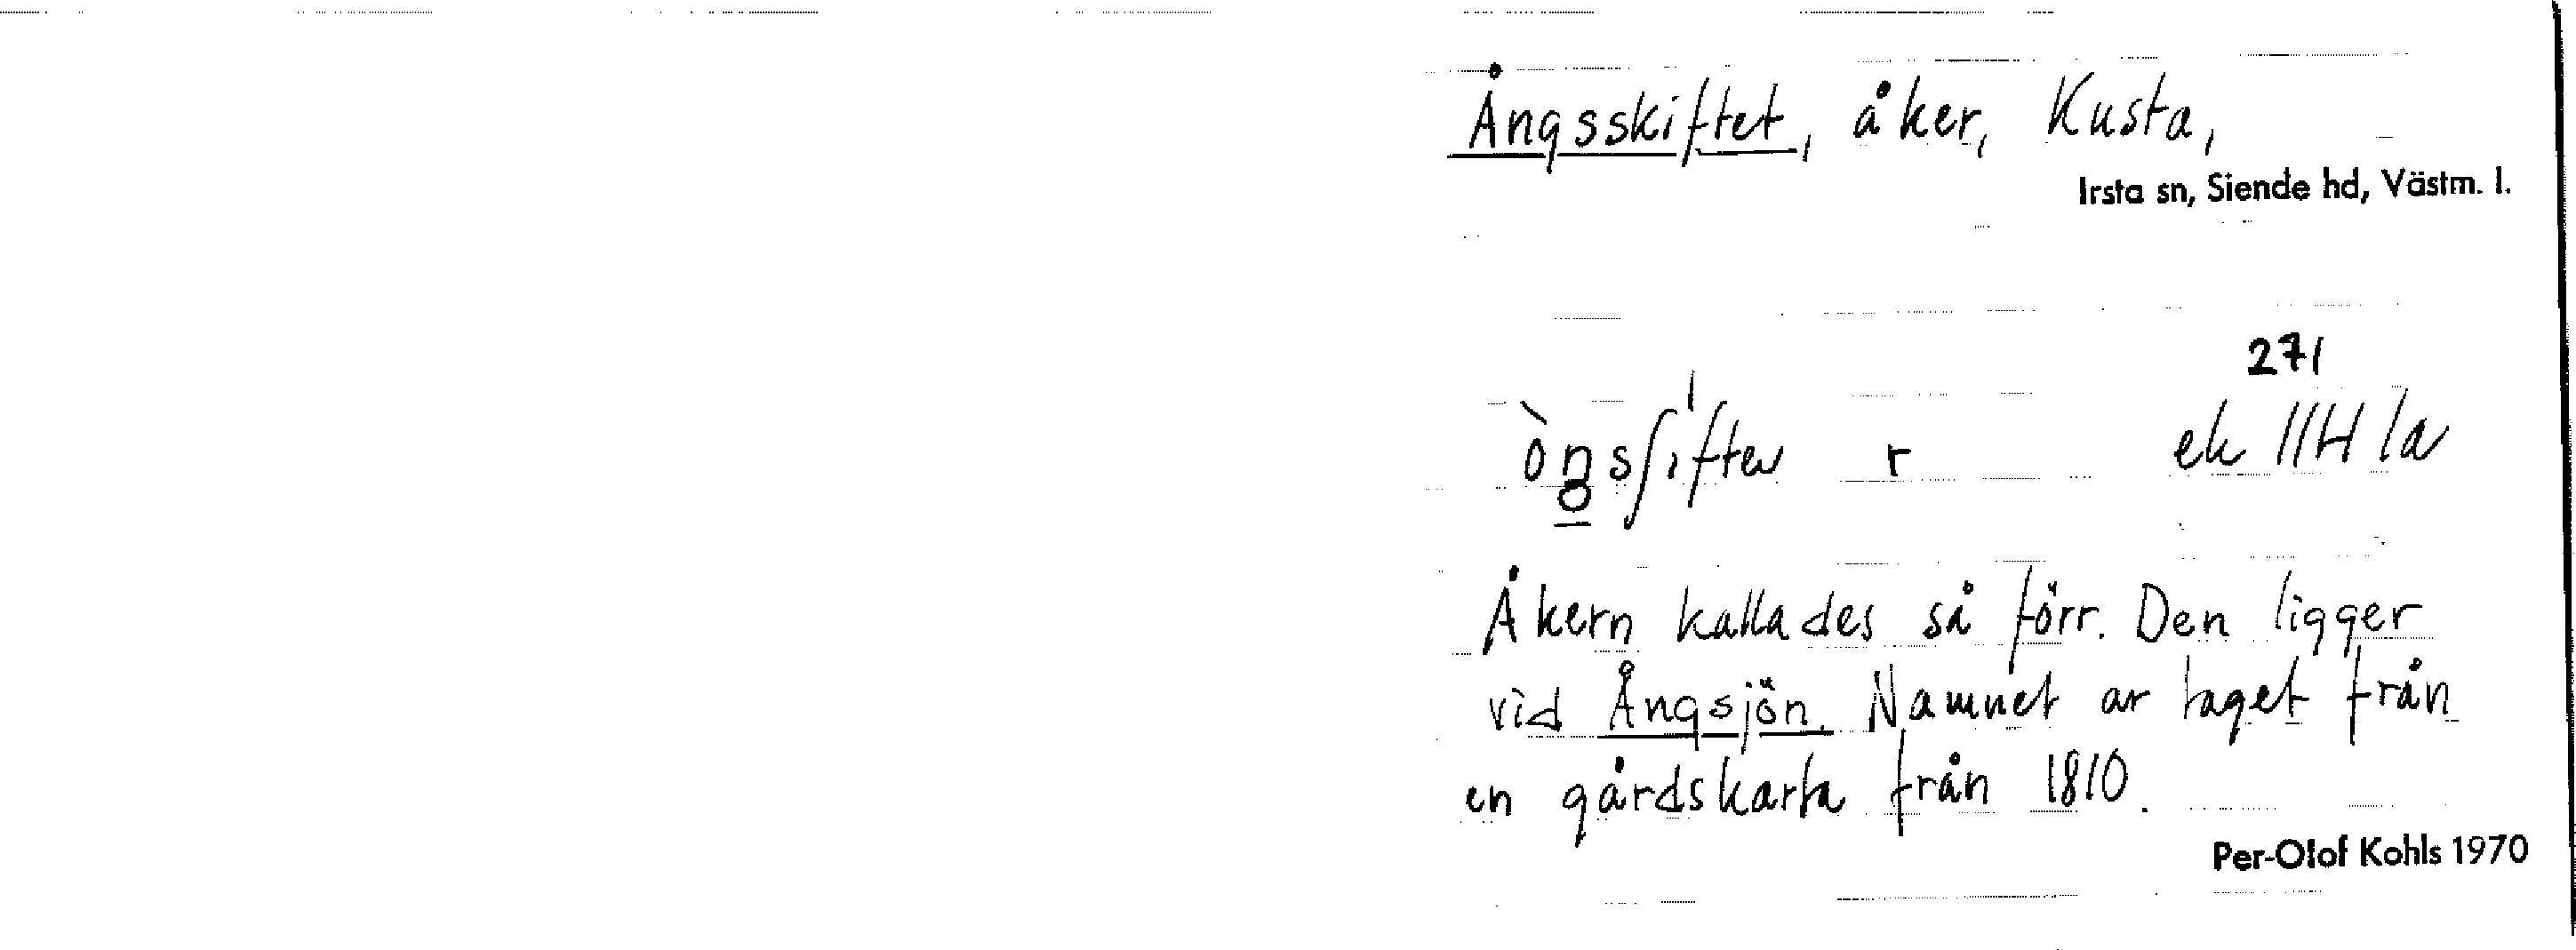 Ångsskiftet, åker, Kusta,
Irsta sn, Siende hd, Västm. l.
271
r ek 11H 1a
Åkern kallades så förr. Den ligger
vid Ångsjön. Namnet ar taget från
en gårdskarta från 1810.
Per-Olof Kohls 1970